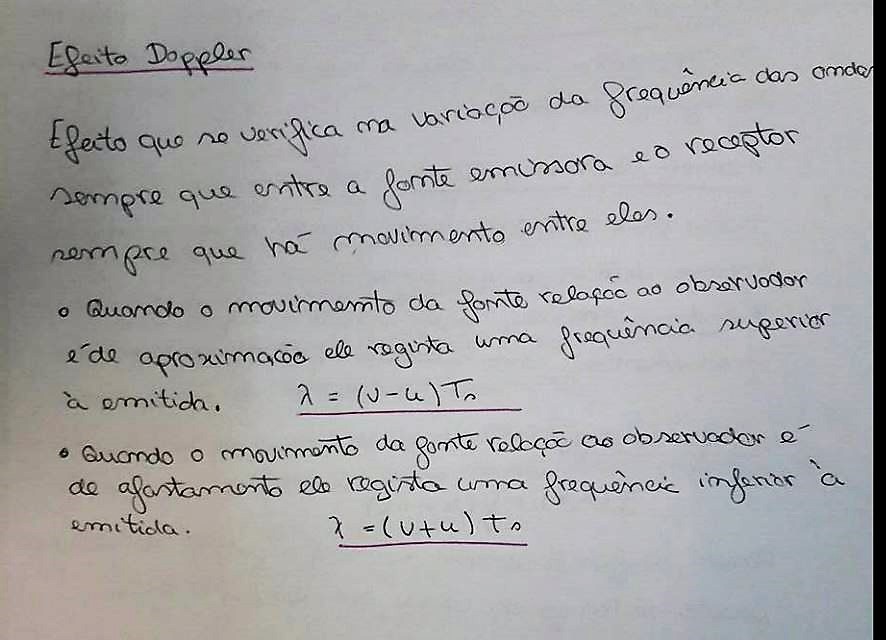 Efeito Doppler
Efeito que se verifica na variação da frequência das ondas
sempre que entre a fonte emissora e o receptor
sempre que há movimento entre eles.
• Quando o movimento da fonte relação ao observador
é de aproximação ele regista uma frequência superior
à emitida. λ = (v-u)Ts
• Quando o movimento da fonte relação ao observador é
de afastamento ele regista uma frequência inferior à
emitida. λ = (v+u) ts